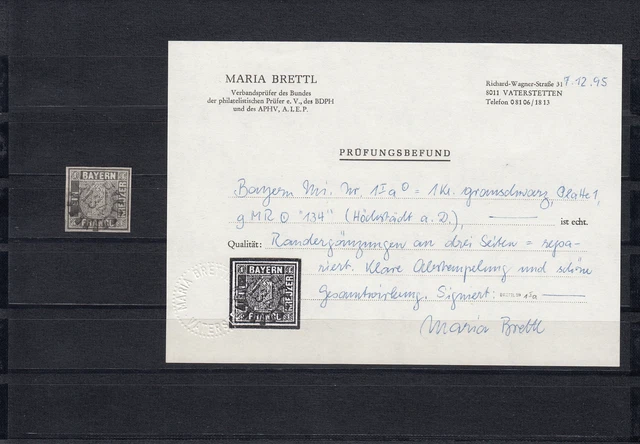 BAYERN
KREUZER
MARIA BRETTL
Verbandsprüfer des Bundes
der philatelistischen Prüfer e. V., des BDPH
und des APHV, A.I.E.P.
Richard-Wagner-Straße 31 7.12.95
8011 VATERSTETTEN
Telefon 08106/1813
PRÜFUNGSBEFUND
Bayern Mi. Nr. 1Ia = 1 Kr. grauschwarz, Platte 1,
gMR "134" (Höchstädt a.D.), ist echt.
Qualität: Randergänzungen an drei Seiten = repa-
riert. Klare Abstempelung und schöne
Gesamtwirkung. Signiert:
Maria Brettl
MARIA BRETTL
BAYERN
KREUZER